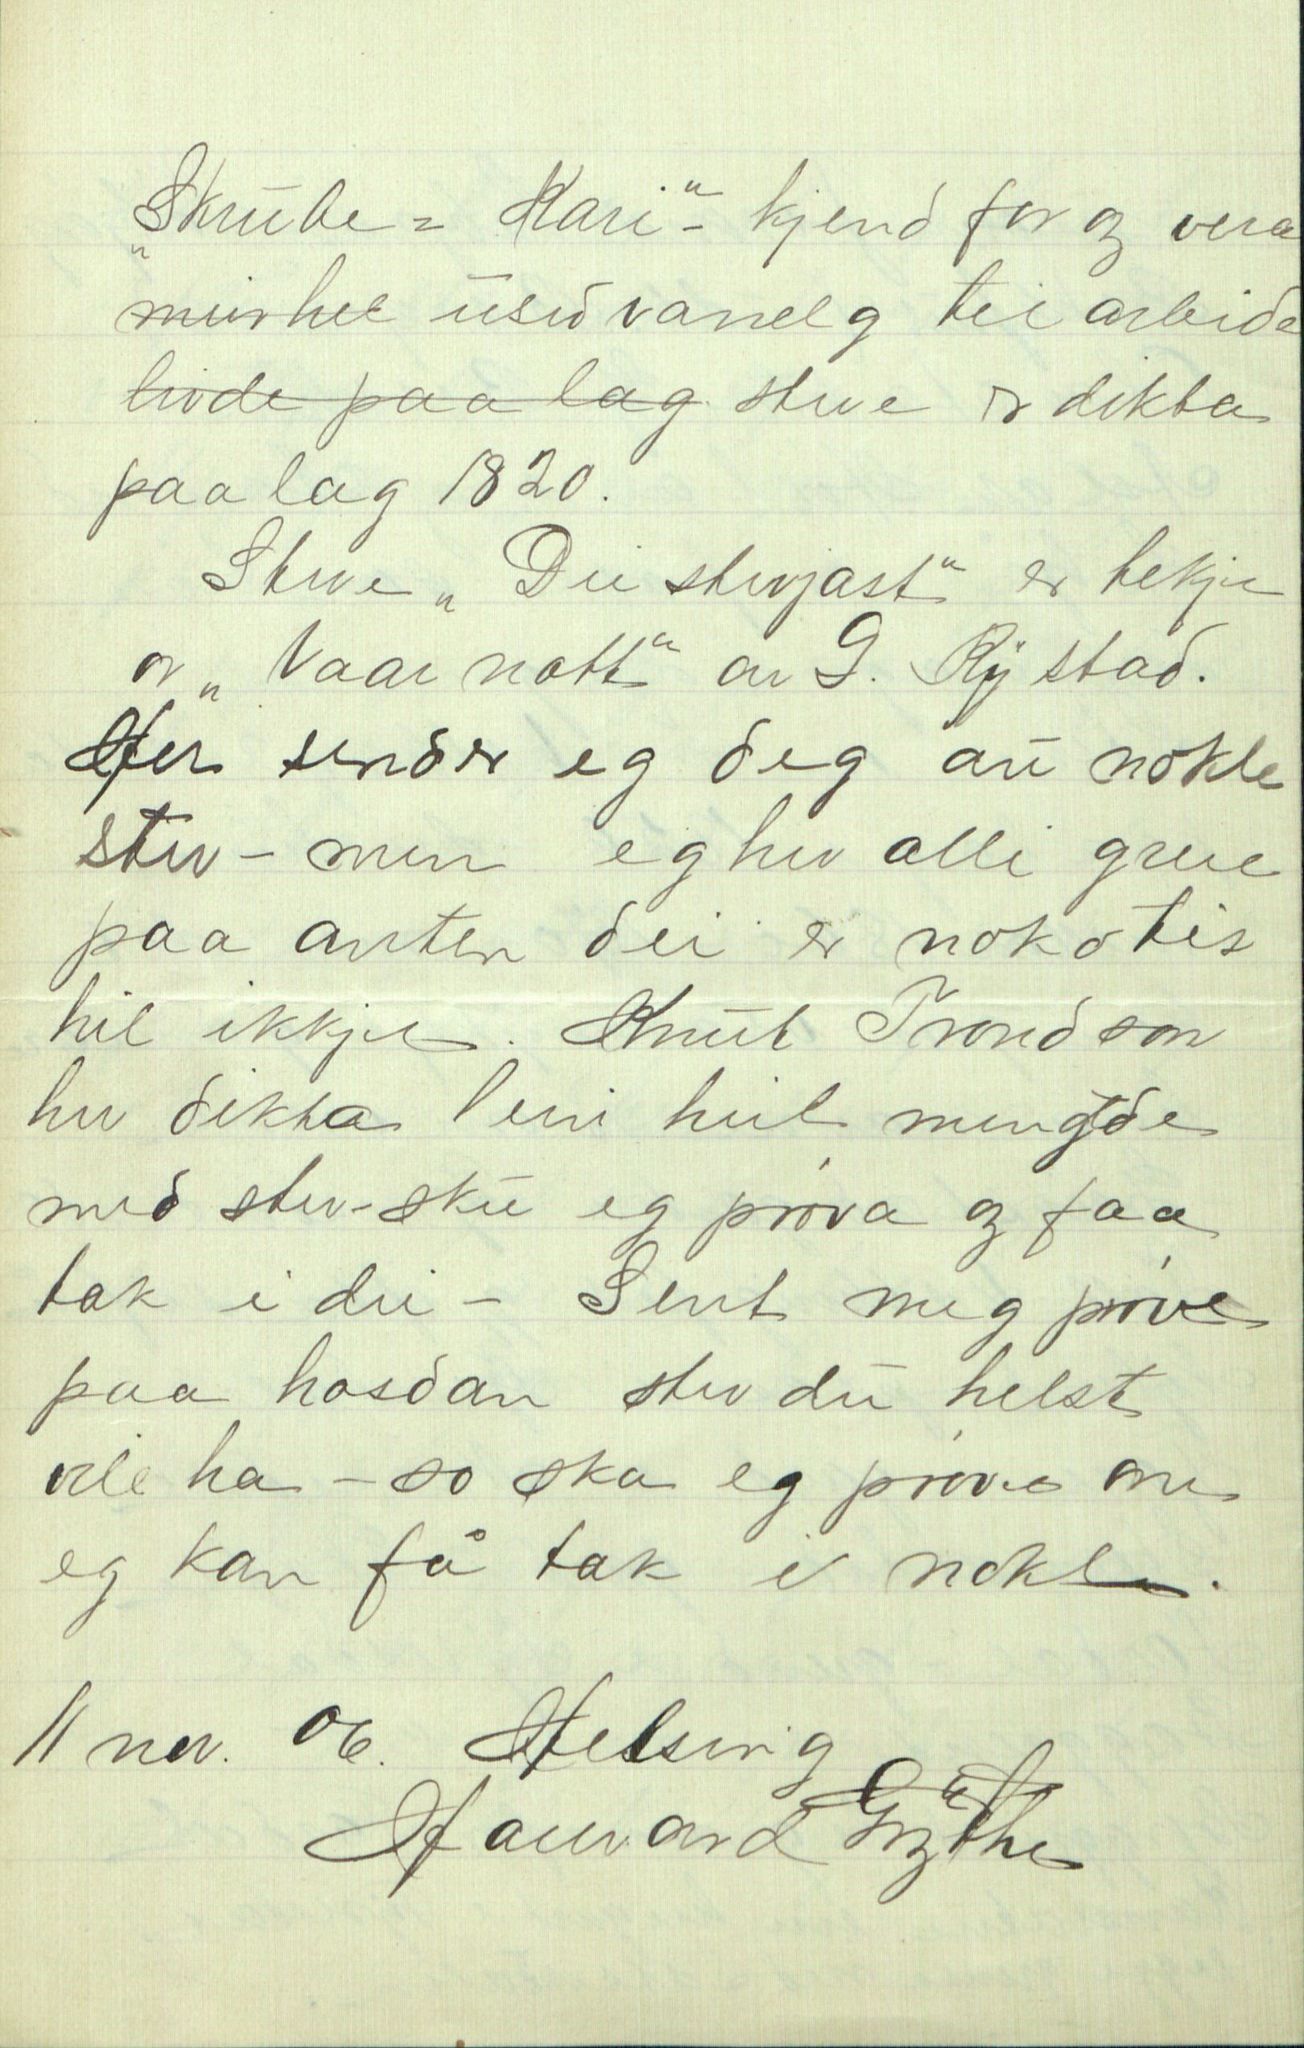 „Skrube = Kari“ - kjend for og vera
mirhel usidvanelg tei arbide
livde paa lag stve er dikta
paa lag 1820.
Stve „Dei stivjast“ er tekje
or „Vaar nott“ av G. Rystad.
Her sender eg deg au nokle
stev - men eg hev alli greie
paa anten dei er noko tis
hil ikkje. Knut Trondson
hev dikta ein hiil mengde
med stev - sku eg prøva og faa
tak i dei - Sent meg prøve
paa hosdan stev du helst
vile ha - so ska eg prøve om
eg kan få tak i nokle.
11 nov. 06. Helsing
Haavard Gjøthe